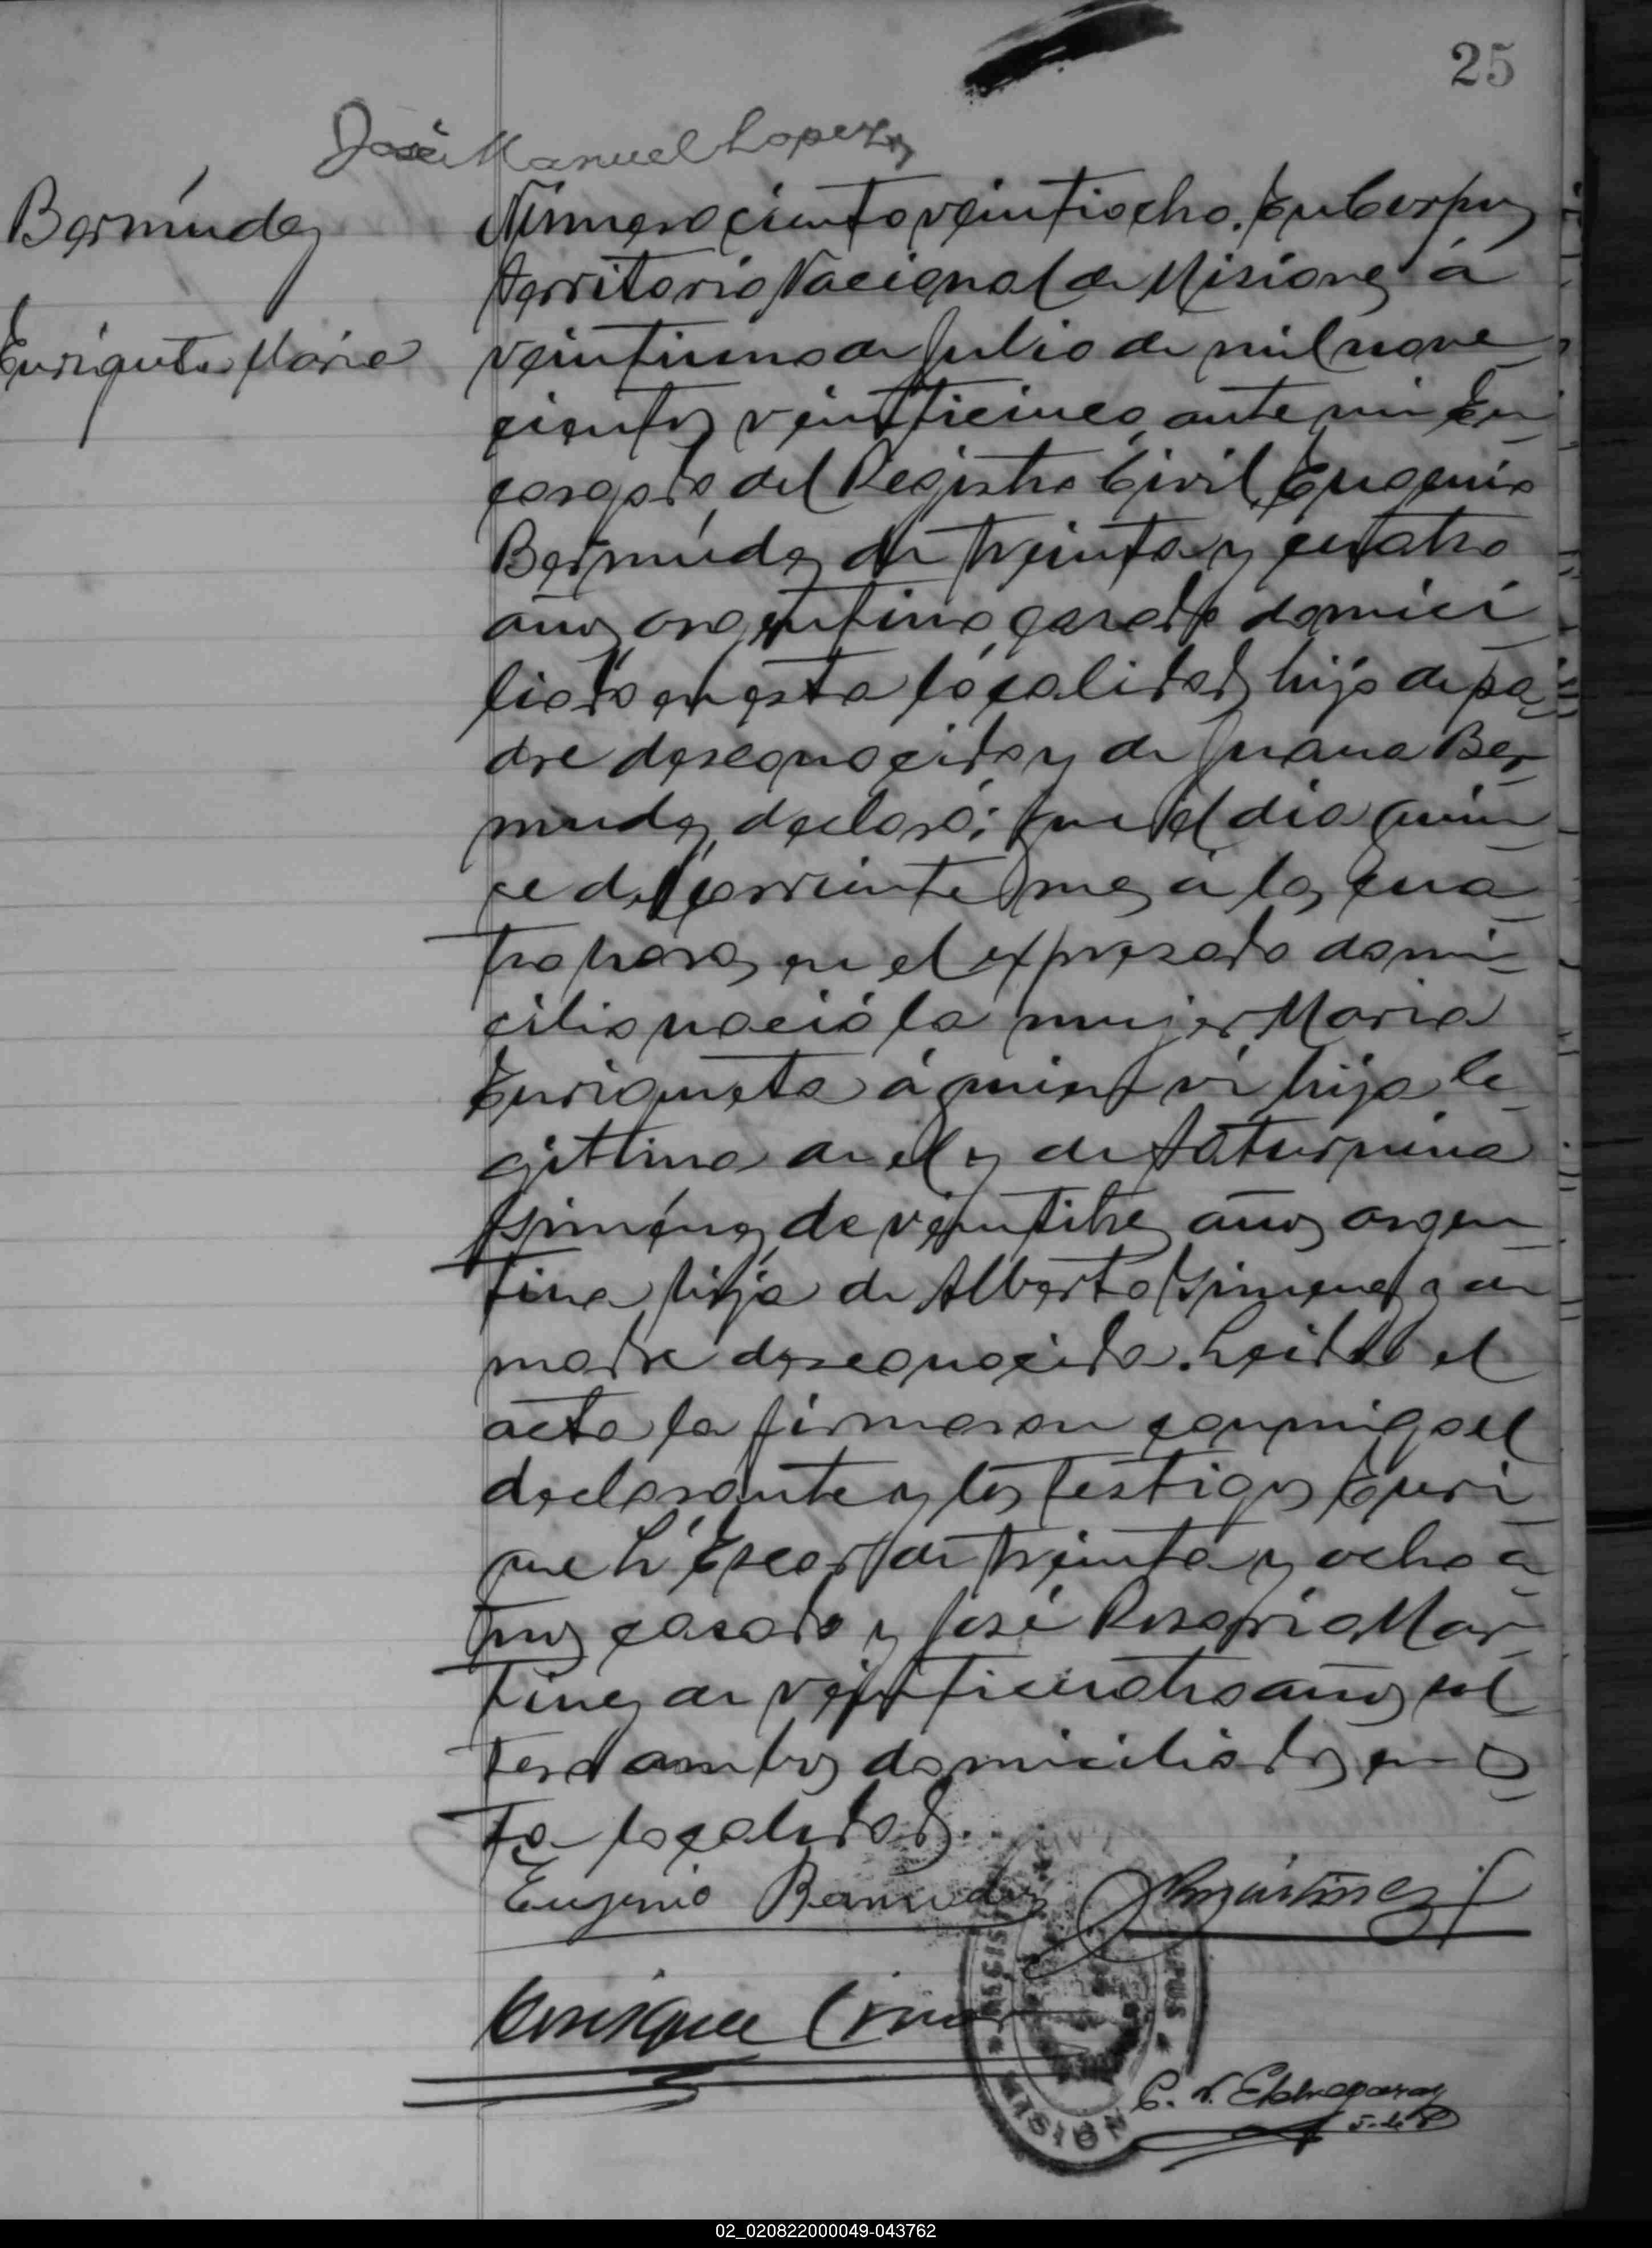 25
José Manuel Lopez
Bermúdez
Enriqueta Maria
Número ciento veintiocho. En Corpus
Territorio Nacional de Misiones á
veintiuno de Julio de mil nove
cientos veinticinco, ante mi En
cargado del Registro Civil, Eugenio
Bermúdez de treinta y cuatro
años argentino casado domici
liado en esta localidad, hijo de pa
dre desconocido y de Juana Ber
mudez, declaró; que el día quin
ce del corriente mes á las cua
tro horas, en el expresado domi
cilio nació la mujer Maria
Enriqueta á quien ví hija le
gitima de el y de Saturnina
Giménez de veintitres años argen
tina hija de Alberto Gimenez y de
madre desconocida. Leida el
acta la firmaron conmigo el
declarante y los testigos Enri
que L' de treinta y ocho a
ños casado y José Rosario Mar
tinez de veinticuatro años sol
tero ambos domiciliados en es
ta localidad.
Eugenio Bermudez Martinez
Enrique
REGIS
MISION
C. V. Etchegaray
J. de P
02_020822000049-043762